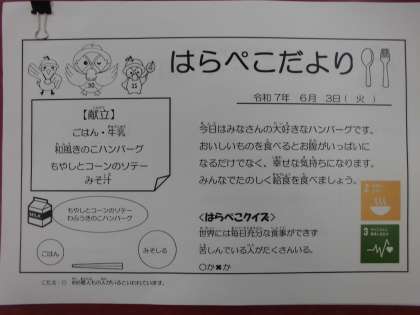 はらぺこだより
令和7年 6月 3日( 火 )
【献立】
ごはん・牛乳
和風きのこハンバーグ
もやしとコーンのソテー
みそ汁
今日はみなさんの大好きなハンバーグです。
おいしいものを食べるとお腹がいっぱいに
なるだけでなく、幸せな気持ちになります。
みんなでたのしく給食を食べましょう。
もやしとコーンのソテー
わふうきのこハンバーグ
MILK
ごはん
みそしる
<はらぺこクイズ>
世界には毎日充分な食事ができず
苦しんでいる人がたくさんいる。
○か✖か
2
3
こたえ:○